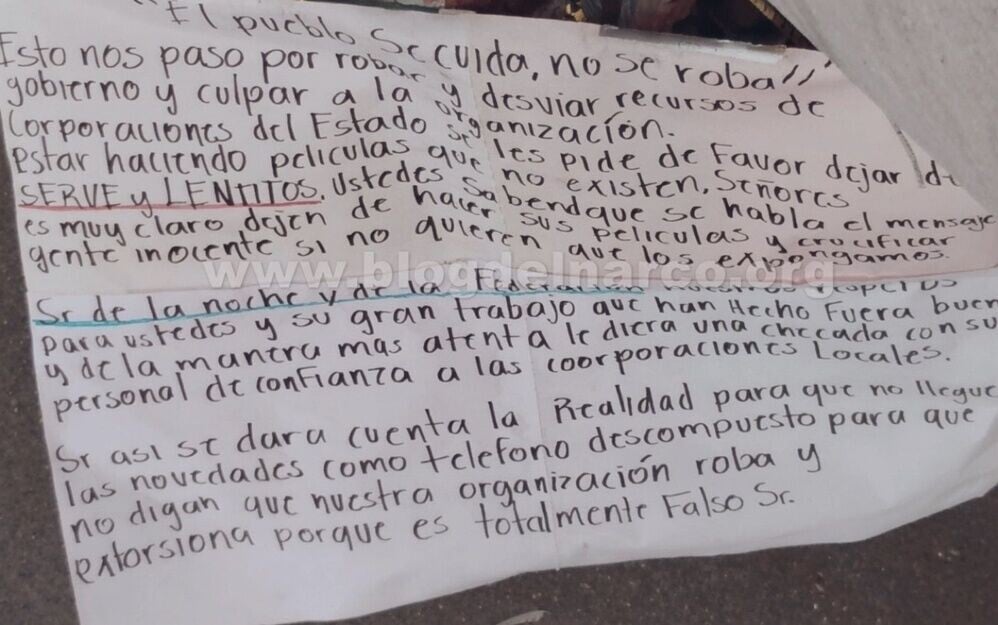 "El pueblo se cuida, no se roba//"
Esto nos paso por robar y desviar recursos de
gobierno y culpar a la organización.
Corporaciones del Estado se les pide de Favor dejar de
estar haciendo peliculas que no existen, Señores
SERVE y LENTITOS. Ustedes sabend que se habla el mensaje
es muy claro dejen de hacer sus peliculas y crucificar
gente inocente si no quieren que los expongamos.
www.blogdelnarco.org
Sr de la noche y de la Federación
para ustedes y su gran trabajo que han Hecho Fuera buen
y de la manera mas atenta le diera una checada con su
personal de confianza a las coorporaciones Locales.
Sr asi se dara cuenta la Realidad para que no llegue
las novedades como telefono descompuesto para que
no digan que nuestra organización roba y
extorsiona porque es totalmente Falso Sr.